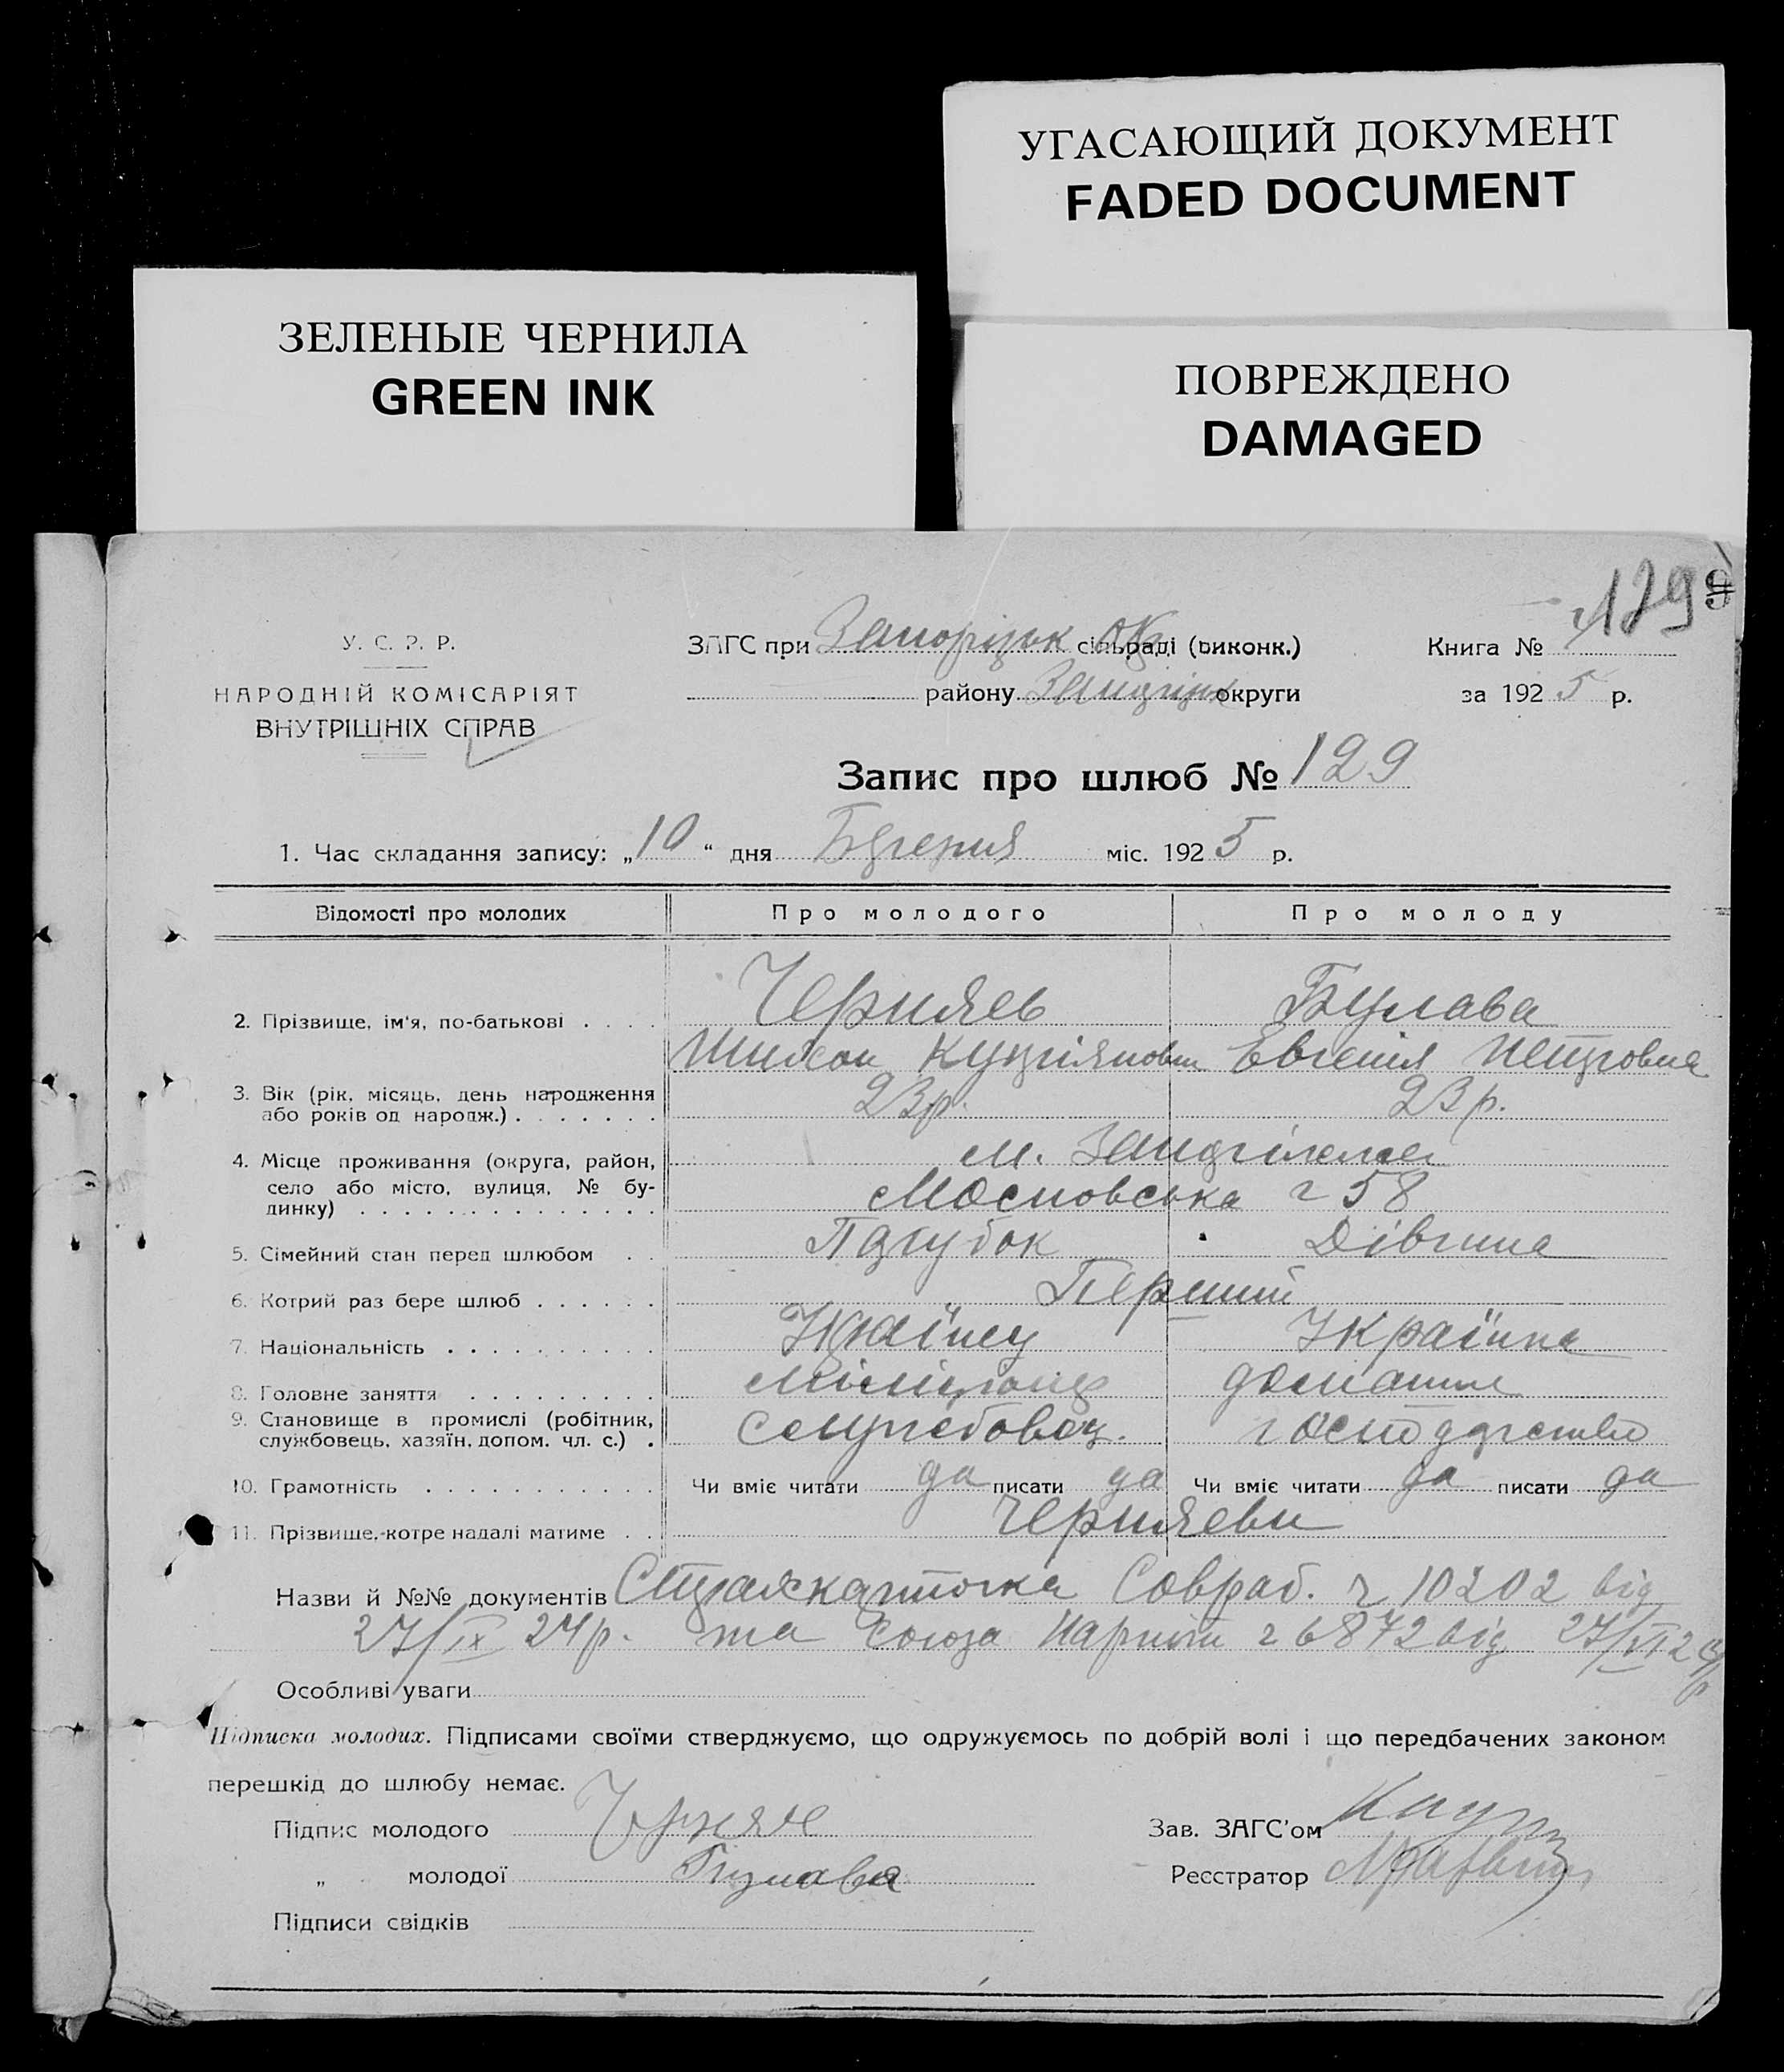 УГАСАЮЩИЙ ДОКУМЕНТ
FADED DOCUMENT
ЗЕЛЕНЫЕ ЧЕРНИЛА
GREEN INK
ПОВРЕЖДЕНО
DAMAGED
129
У. С. Р. Р.
НАРОДНІЙ КОМІСАРІЯТ
ВНУТРІШНІХ СПРАВ
ЗАГС при Запорізьк ок. сільраді (виконк.) Книга №
району Запоріжж округи за 1925 р.
Запис про шлюб № 129
1. Час складання запису: „10“ дня Березня міс. 1925 р.
Відомості про молодих Про молодого Про молоду
2. Прізвище, ім'я, по-батькові Черняев Булава
Купріянович Евгенія Петровна
3. Вік (рік, місяць, день народження або років од народж.) 23 р. 23 р.
4. Місце проживання (округа, район, село або місто, вулиця, № будинку) м. Запоріжжя
Московська ч 58
5. Сімейний стан перед шлюбом Парубок Дівчина
6. Котрий раз бере шлюб Перший
7. Національність Українец Українка
8. Головне заняття Міліціонер домашне
9. Становище в промислі (робітник, службовець, хазяїн, допом. чл. с.) Службовец. господарство
10. Грамотність Чи вміє читати да писати да Чи вміє читати да писати да
11. Прізвище, котре надалі матиме Черняеви
Назви й №№ документів Страхкарточка Совраб. ч 10202 від
27/IX 24 р. та Союза Нарпит ч 6872 від 27/VI 24 р
Особливі уваги
Підписка молодих. Підписами своїми стверджуємо, що одружуємось по добрій волі і що передбачених законом
перешкід до шлюбу немає.
Підпис молодого Черняев Зав. ЗАГС'ом
„ молодої Булава Реєстратор
Підписи свідків